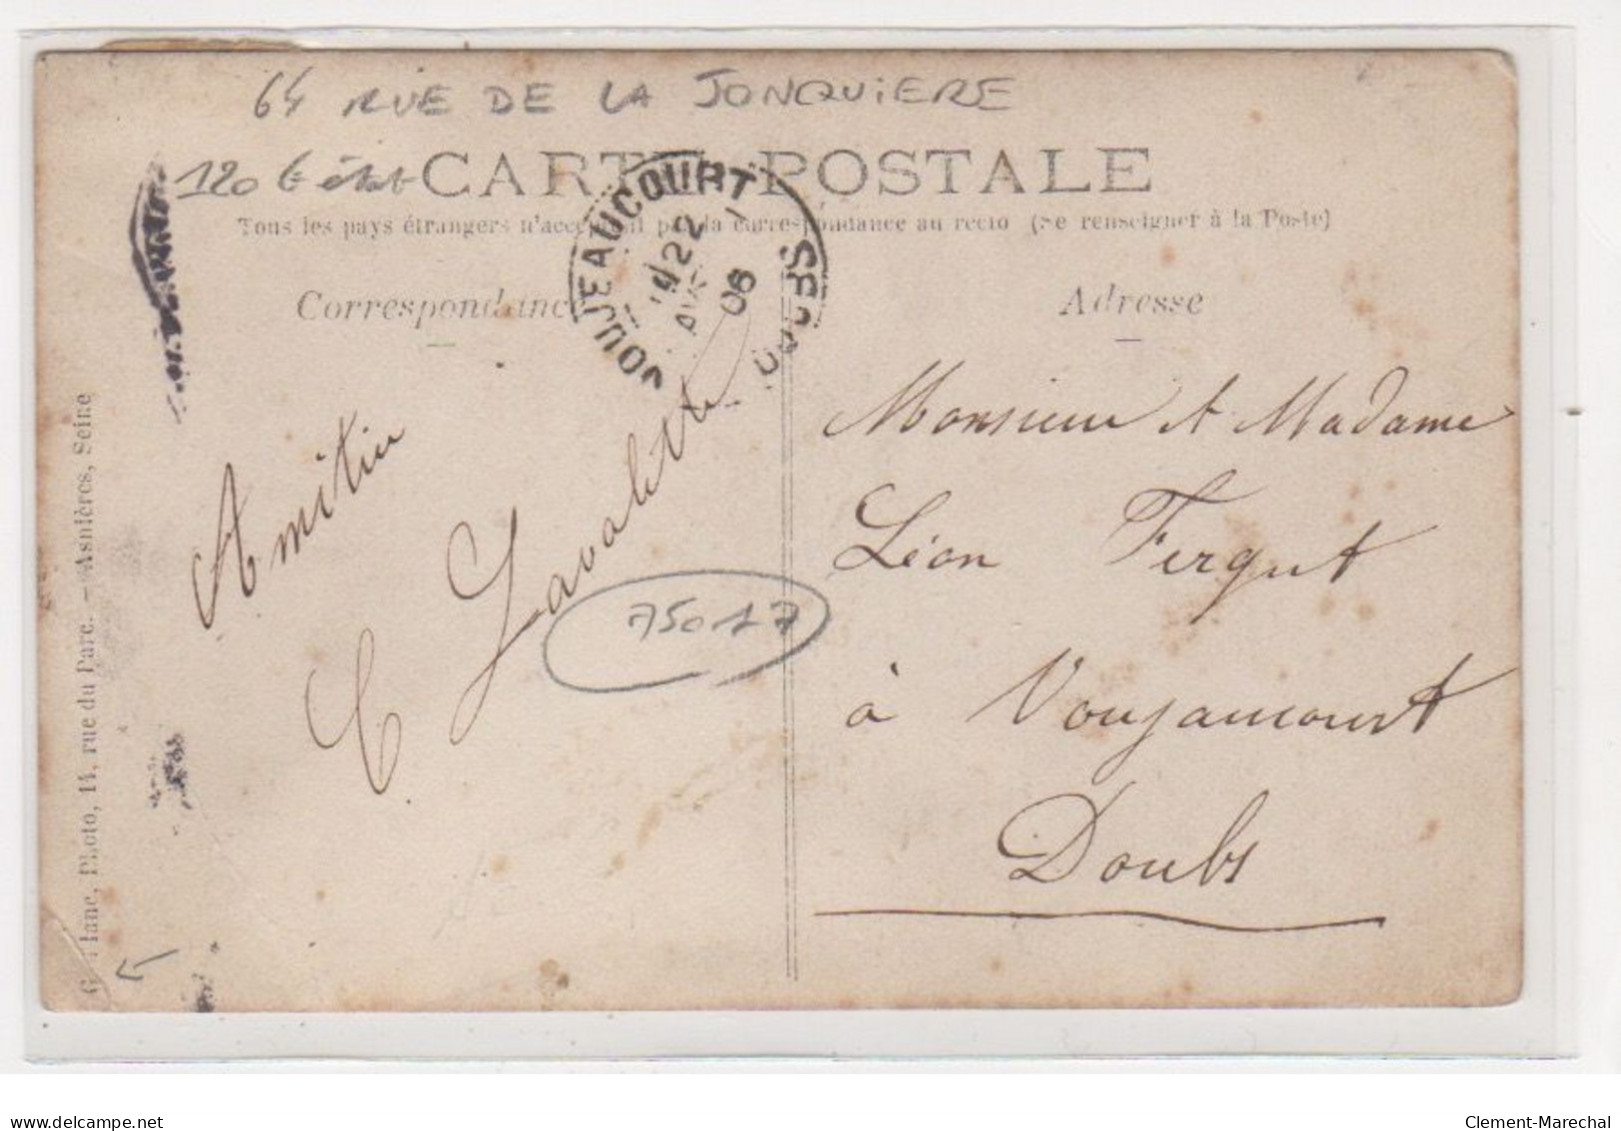 64 RUE DE LA JONQUIERE
120 € état
CARTE POSTALE
Tous les pays étrangers n'acceptent pas la correspondance au recto (Se renseigner à la Poste)
Correspondance
Adresse
VOUJEAUCOURT
22
06
DOUBS
Amitiés
C Lavalette
75017
Monsieur et Madame
Léon Fergut
à Voujaucourt
Doubs
Photo, 14, rue du Parc. — Asnières, Seine
www.delcampe.net
Clement-Marechal